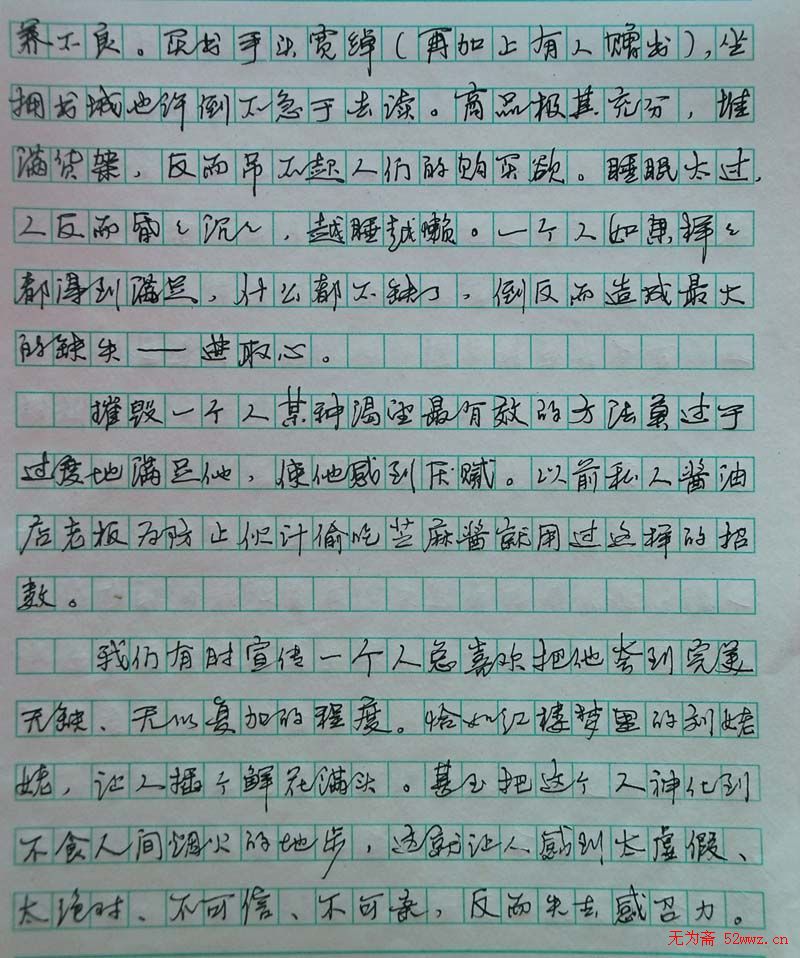 养不良。买书手头宽绰（再加上有人赠书），坐
拥书城也许倒不急于去读。商品极其充分，堆
满货架，反而吊不起人们的购买欲。睡眠太过，
人反而昏々沉々，越睡越懒。一个人如果样々
都得到满足，什么都不缺了，倒反而造成最大
的缺失——进取心。
摧毁一个人某种渴望最有效的方法莫过于
过度地满足他，使他感到厌腻。以前私人酱油
店老板为防止伙计偷吃芝麻酱就用过这样的招
数。
我们有时宣传一个人总喜欢把他夸到完美
无缺、无以复加的程度。恰如红楼梦里的刘姥
姥，让人插个鲜花满头。甚至把这个人神化到
不食人间烟火的地步，这就让人感到太虚假、
太绝对、不可信、不可亲，反而失去感召力。
无为斋 52wwz.cn